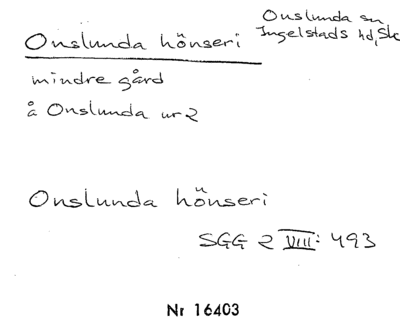 Onslunda sn
Ingelstads hd, Sk
Onslunda hönseri
mindre gård
å Onslunda nr 2
Onslunda hönseri
SGG 2 VIII: 493
Nr 16403